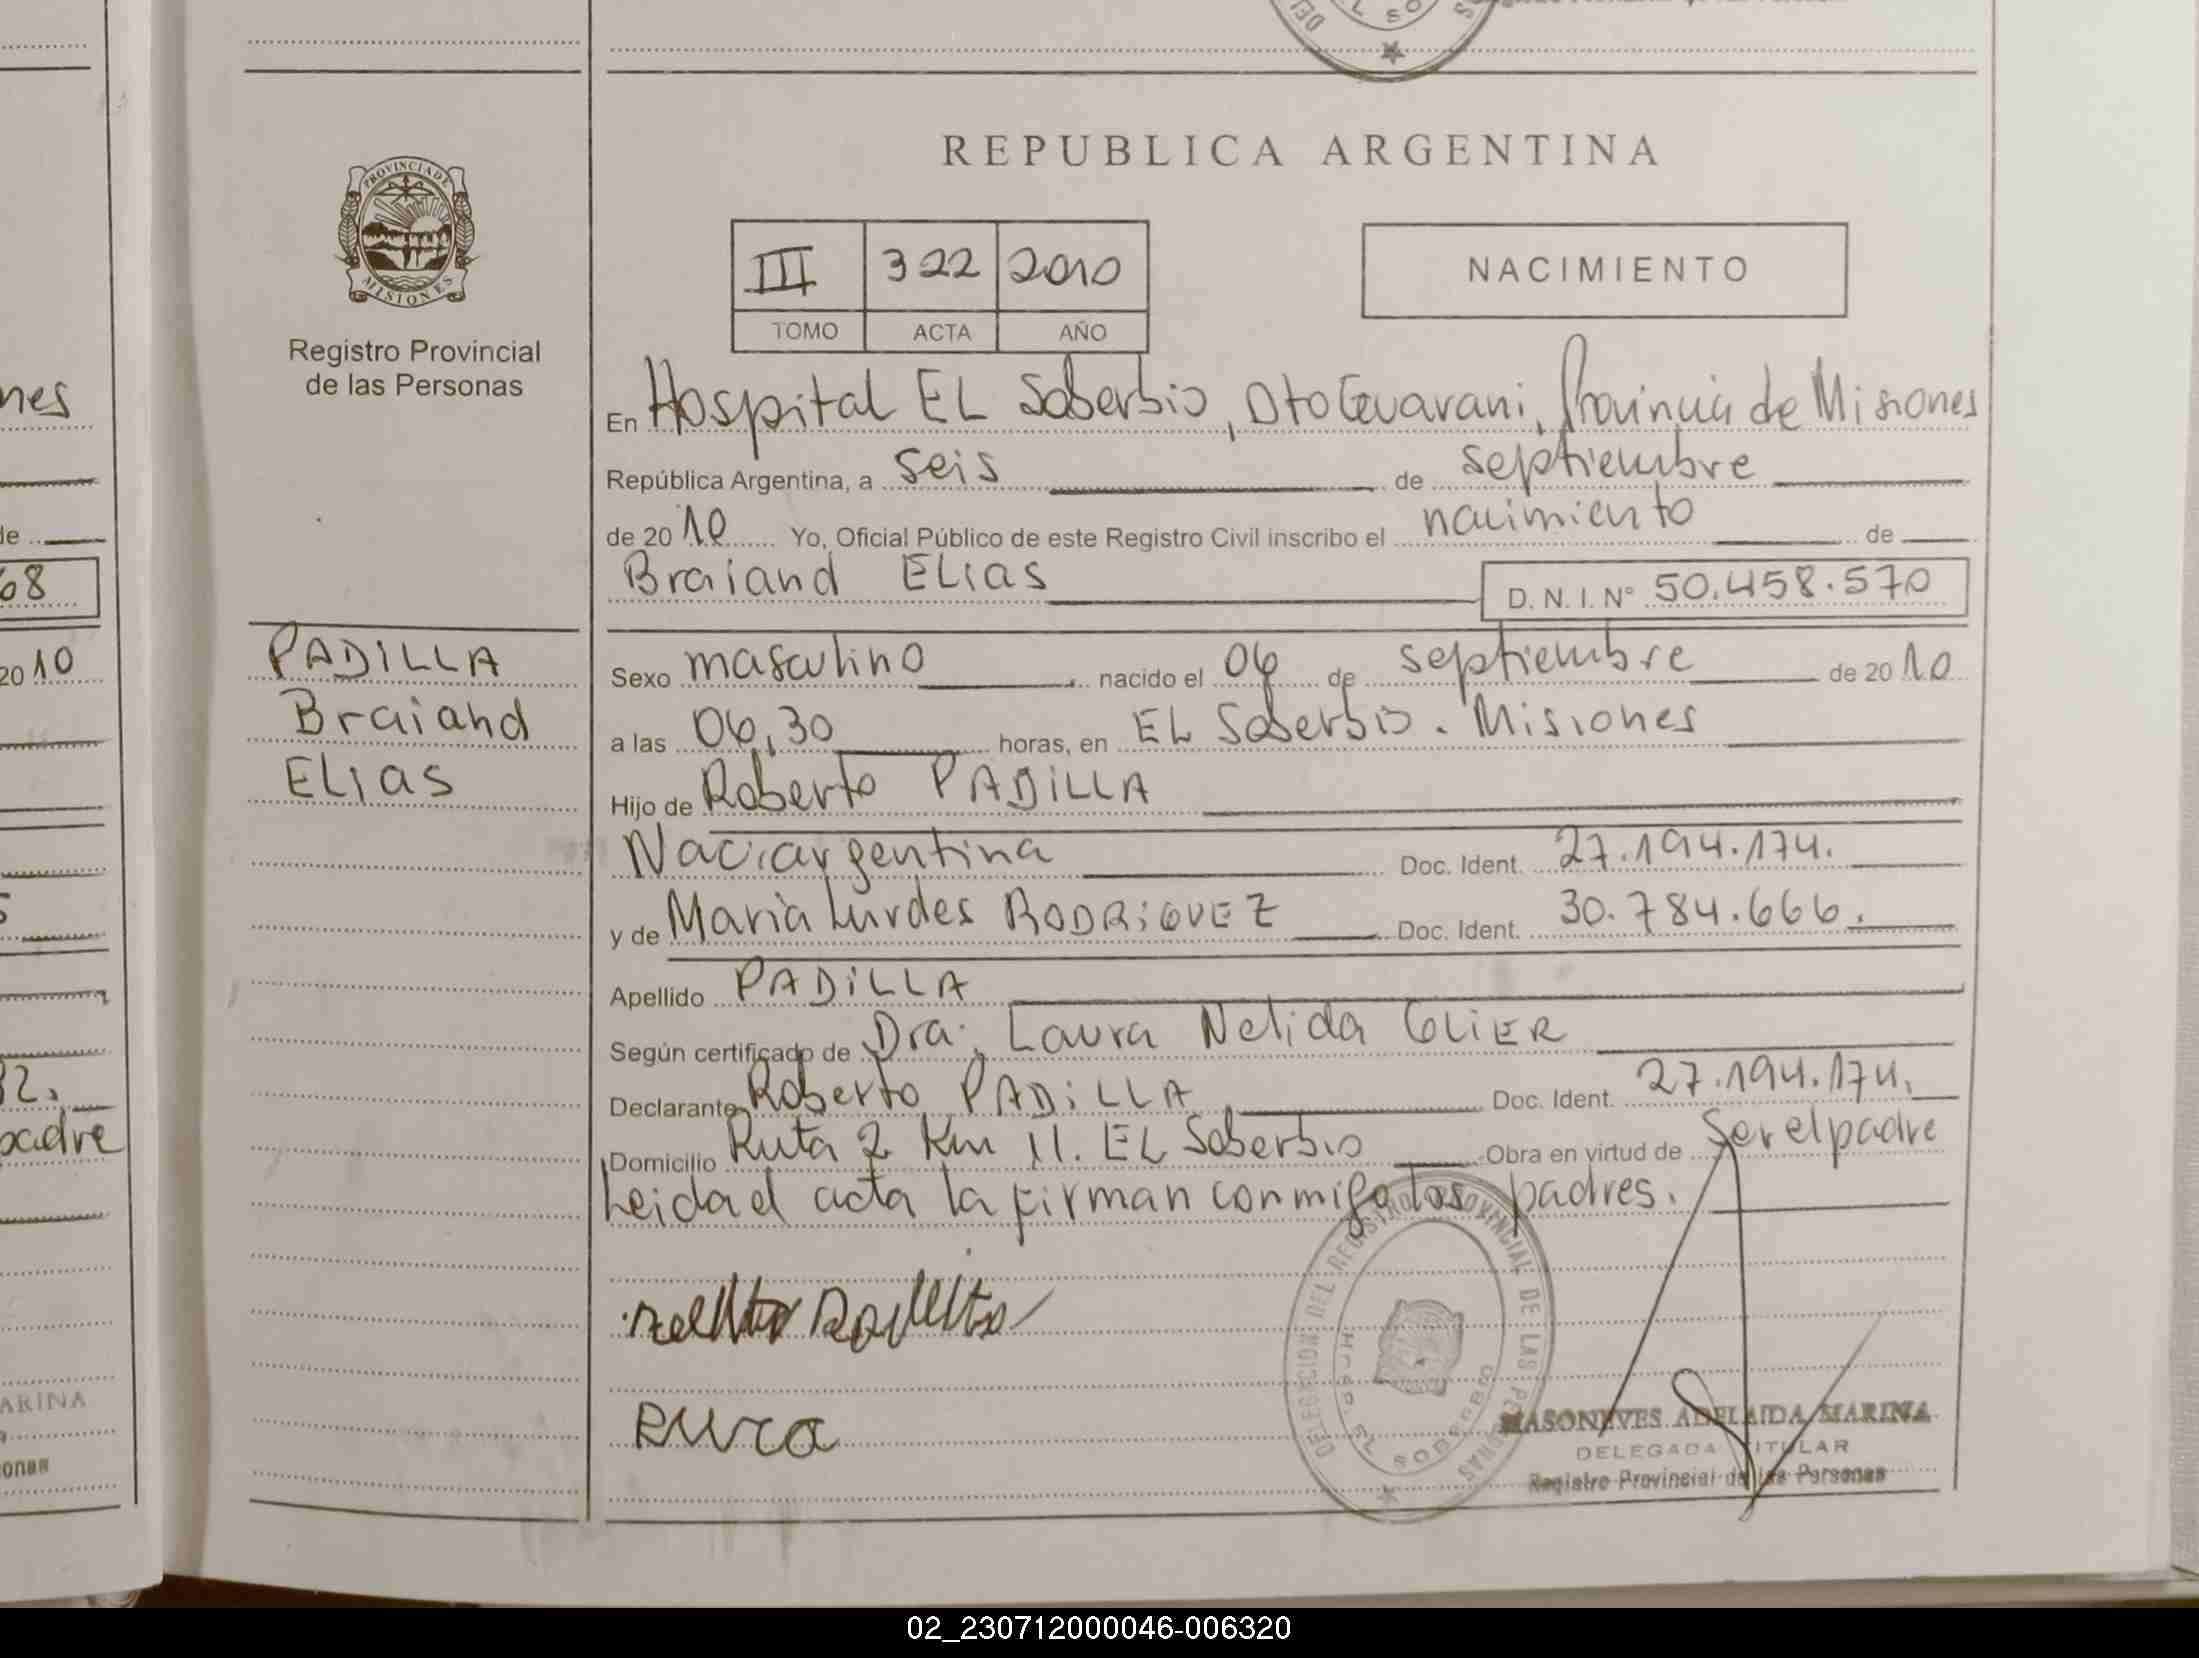 REPUBLICA ARGENTINA
PROVINCIA DE
MISIONES
Registro Provincial
de las Personas
III 322 2010
TOMO ACTA AÑO
NACIMIENTO
En Hospital EL Soberbio, Dto Guarani, Provincia de Misiones
República Argentina, a seis de septiembre
de 2010 Yo, Oficial Público de este Registro Civil inscribo el nacimiento de
Braiand ELias D. N. I. N° 50.458.570
PADILLA
Braiand
ELias
Sexo masculino nacido el 06 de septiembre de 2010
a las 06,30 horas, en EL Soberbio. Misiones
Hijo de Roberto PADiLLA
Nac. argentina Doc. Ident. 27.194.174.
y de Maria Lurdes RODRiGUEZ Doc. Ident. 30.784.666.
Apellido PADiLLA
Según certificado de Dra. Laura Nelida GLiER
Declarante Roberto PADiLLA Doc. Ident. 27.194.174.
Domicilio Ruta 2 Km 11. EL Soberbio Obra en virtud de Ser el padre
Leida el acta la firman conmigo los padres.
DELEGACION DEL REGISTRO PROVINCIAL DE LAS PERSONAS
EL SOBERBIO
MASONEVES ADELAIDA MARINA
DELEGADA TITULAR
Registro Provincial de las Personas
nes
de
68
2010
32.
padre
ARINA
onas
02_230712000046-006320